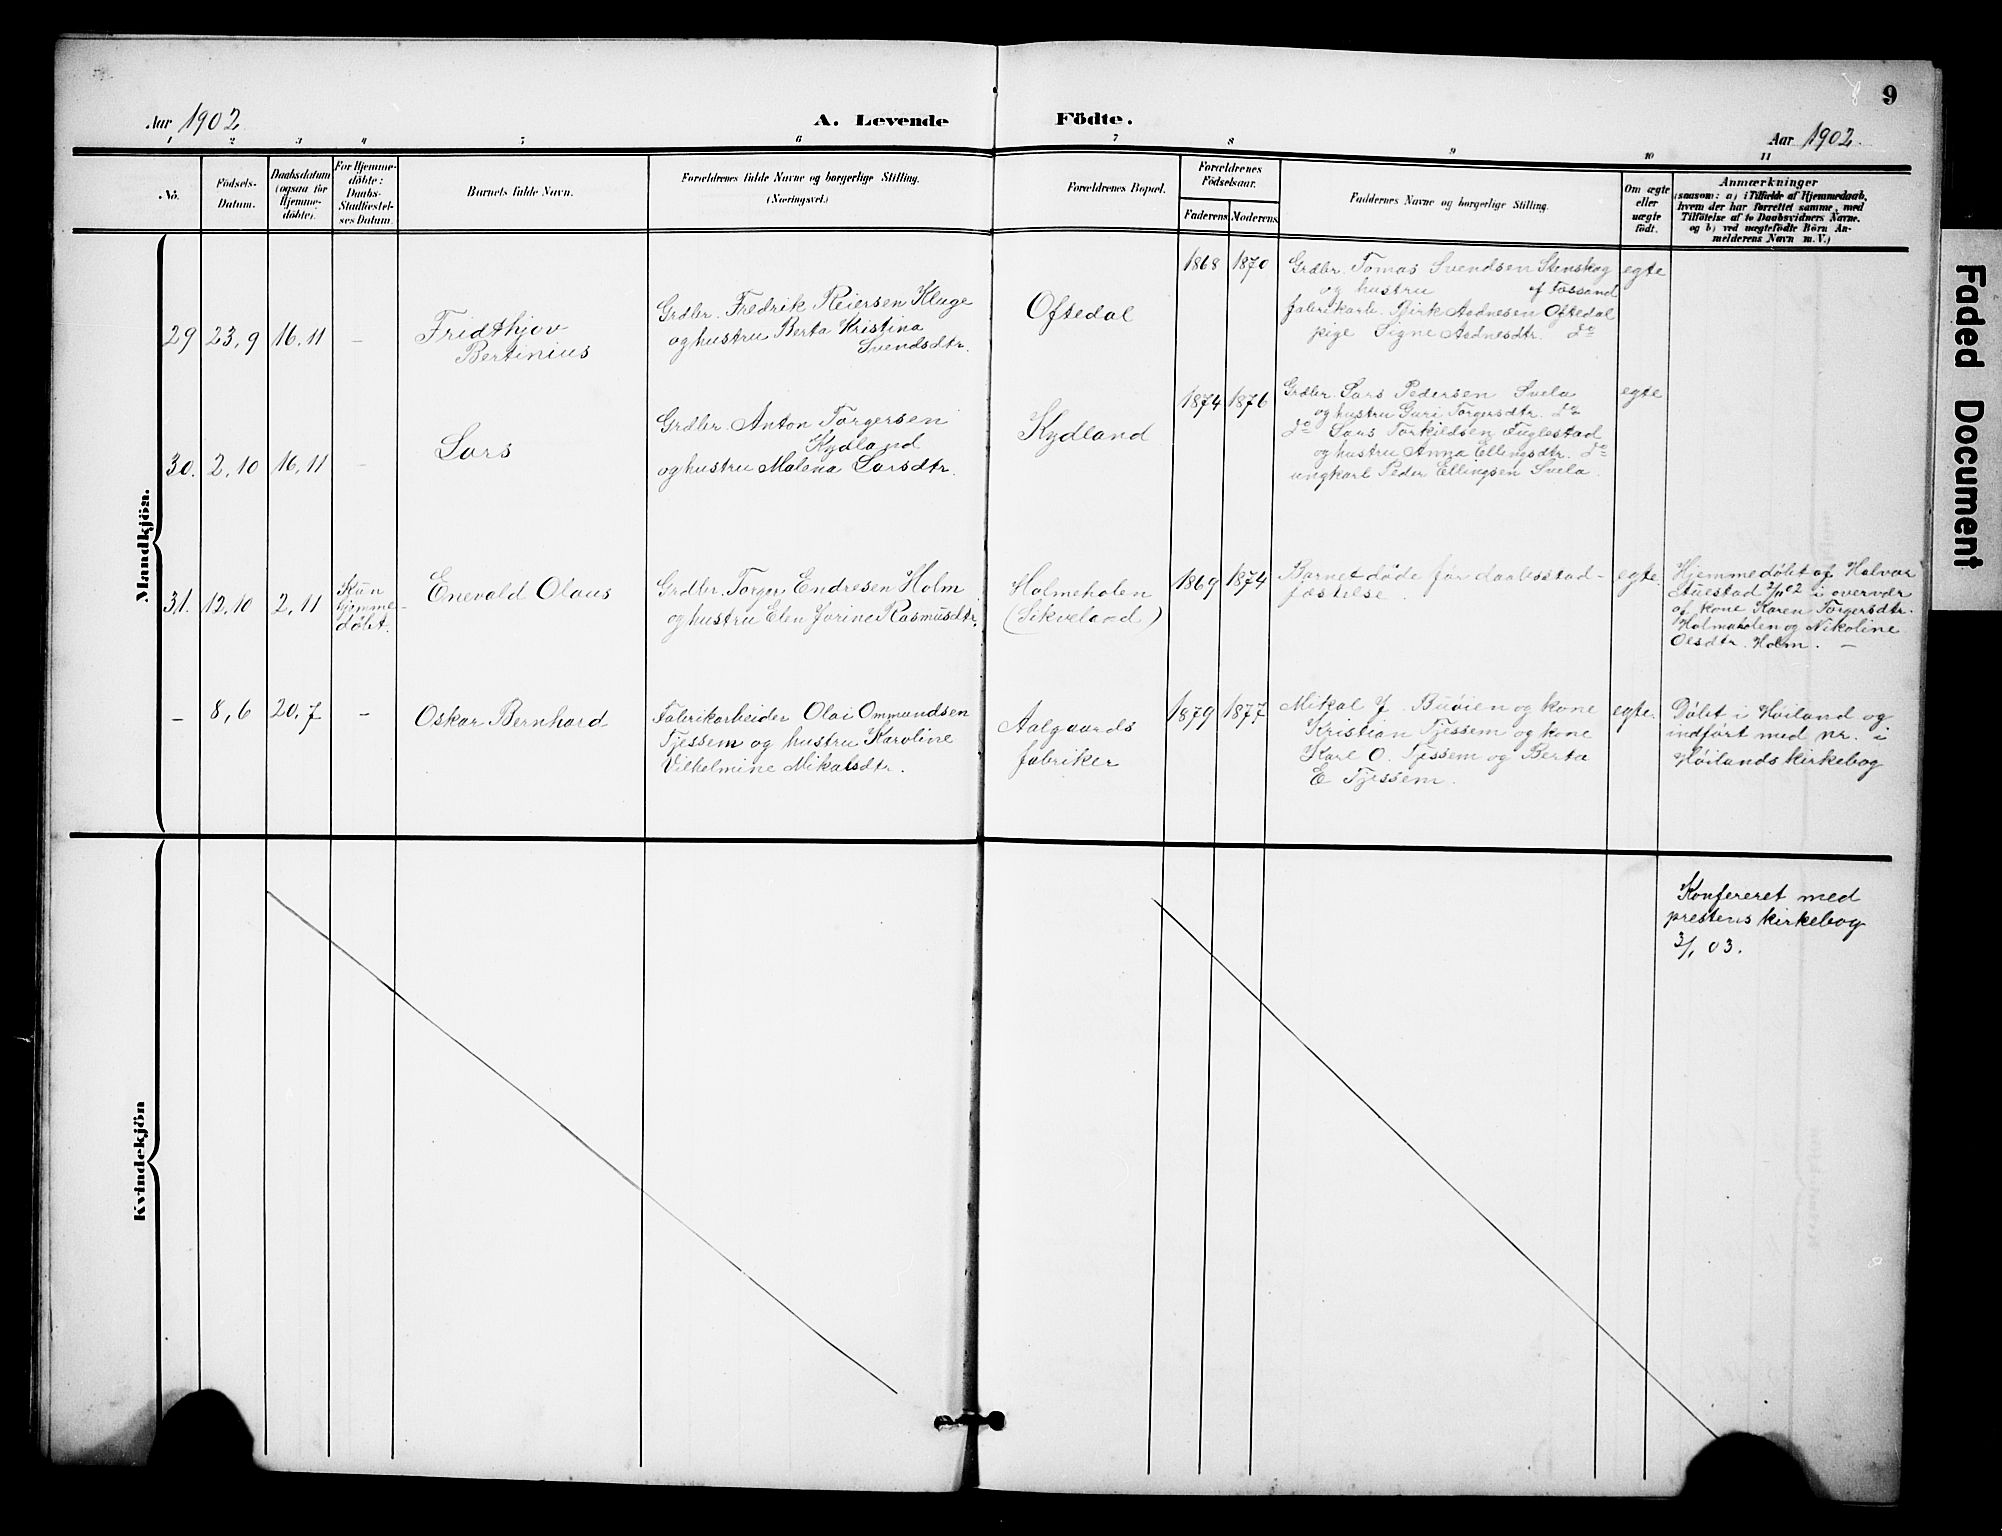 9
Aar 1902
A. Levende Födte.
Aar 1902.
1 2 3 4 5 6 7 8 9 10 11
No.
Födsels-
Datum.
Daabsdatum
(ogsaa for
Hjemme-
döbte).
For Hjemme-
döbte:
Daabs-
Stadfæstel-
ses Datum.
Barnets fulde Navn.
Forældrenes fulde Navne og borgerlige Stilling.
(Næringsvei.)
Forældrenes Bopæl.
Forældrenes
Födselsaar.
Faderens
Moderens.
Faddernes Navne og borgerlige Stilling.
Om ægte
eller
uægte
födt.
Anmærkninger
(saasom: a) i Tilfælde af Hjemmedaab,
hvem der har forrettet samme, med
Tilföielse af to Daabsvidners Navne.
og b) ved uægtefödte Börn An-
melderens Navn m.V.)
Mandkjön.
29
23,9
16,11
-
Fridthjov
Bertinius
Grdbr. Fredrik Reiersen Kluge
og hustru Berta Kristina
Svendsdtr.
Oftedal
1868
1870
Grdbr. Tomas Svendsen Stenskog
og hustru af Fossand
fabrikarb. Pjirk Asdnesen Oftedal
pige Signe Asdnesdtr. do
egte
30.
2,10
16,11
-
Lars
Grdbr. Anton Torgersen
Kydland
og hustru Malena Larsdtr.
Kydland
1874
1876
Grdbr. Lars Pedersen Svela
og hustru Guri Torgersdtr. do
do Lars Torkildsen Fuglestad
og hustru Anna Ellingsdtr. do
ungkarl Peder Ellingsen Svela.
egte
31.
12,10
2,11
Kun
hjemme-
döbt.
Enevald Olaus
Grdbr. Torger Endresen Holm
og hustru Elen Jorine Rasmusdtr.
Holmeholen
(Sikveland)
1869
1874
Barnet döde för daabsstad-
fæstelse.
egte
Hjemmedöbt af Halvar
Stuestad 2/11 02 i overvær
af kone Karen Torgersdtr.
Holmaholen og Nikoline
Olsdtr. Holm. -
-
8,6
20,7
-
Oskar Bernhard
Fabrikarbeider Olai Ommundsen
Tjessem og hustru Karoline
Vilhelmine Mikalsdtr.
Aalgaards
fabriker
1879
1877
Mikal J. Buöien og kone
Kristian Tjessem og kone
Karl O. Tjessem og Berta
E Tjessem.
egte.
Döbt i Höiland og
indfört med nr. i
Höilands kirkebog
Kvindekjön
Konfereret med
prestens kirkebog
3/1 03.
Faded Document